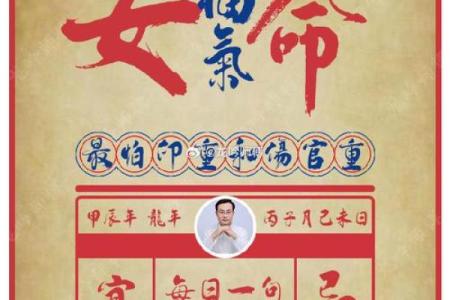 女福氣命
最怕印重和傷官重
甲辰年 龍年 丙子月己未日
宜 每日一句 忌